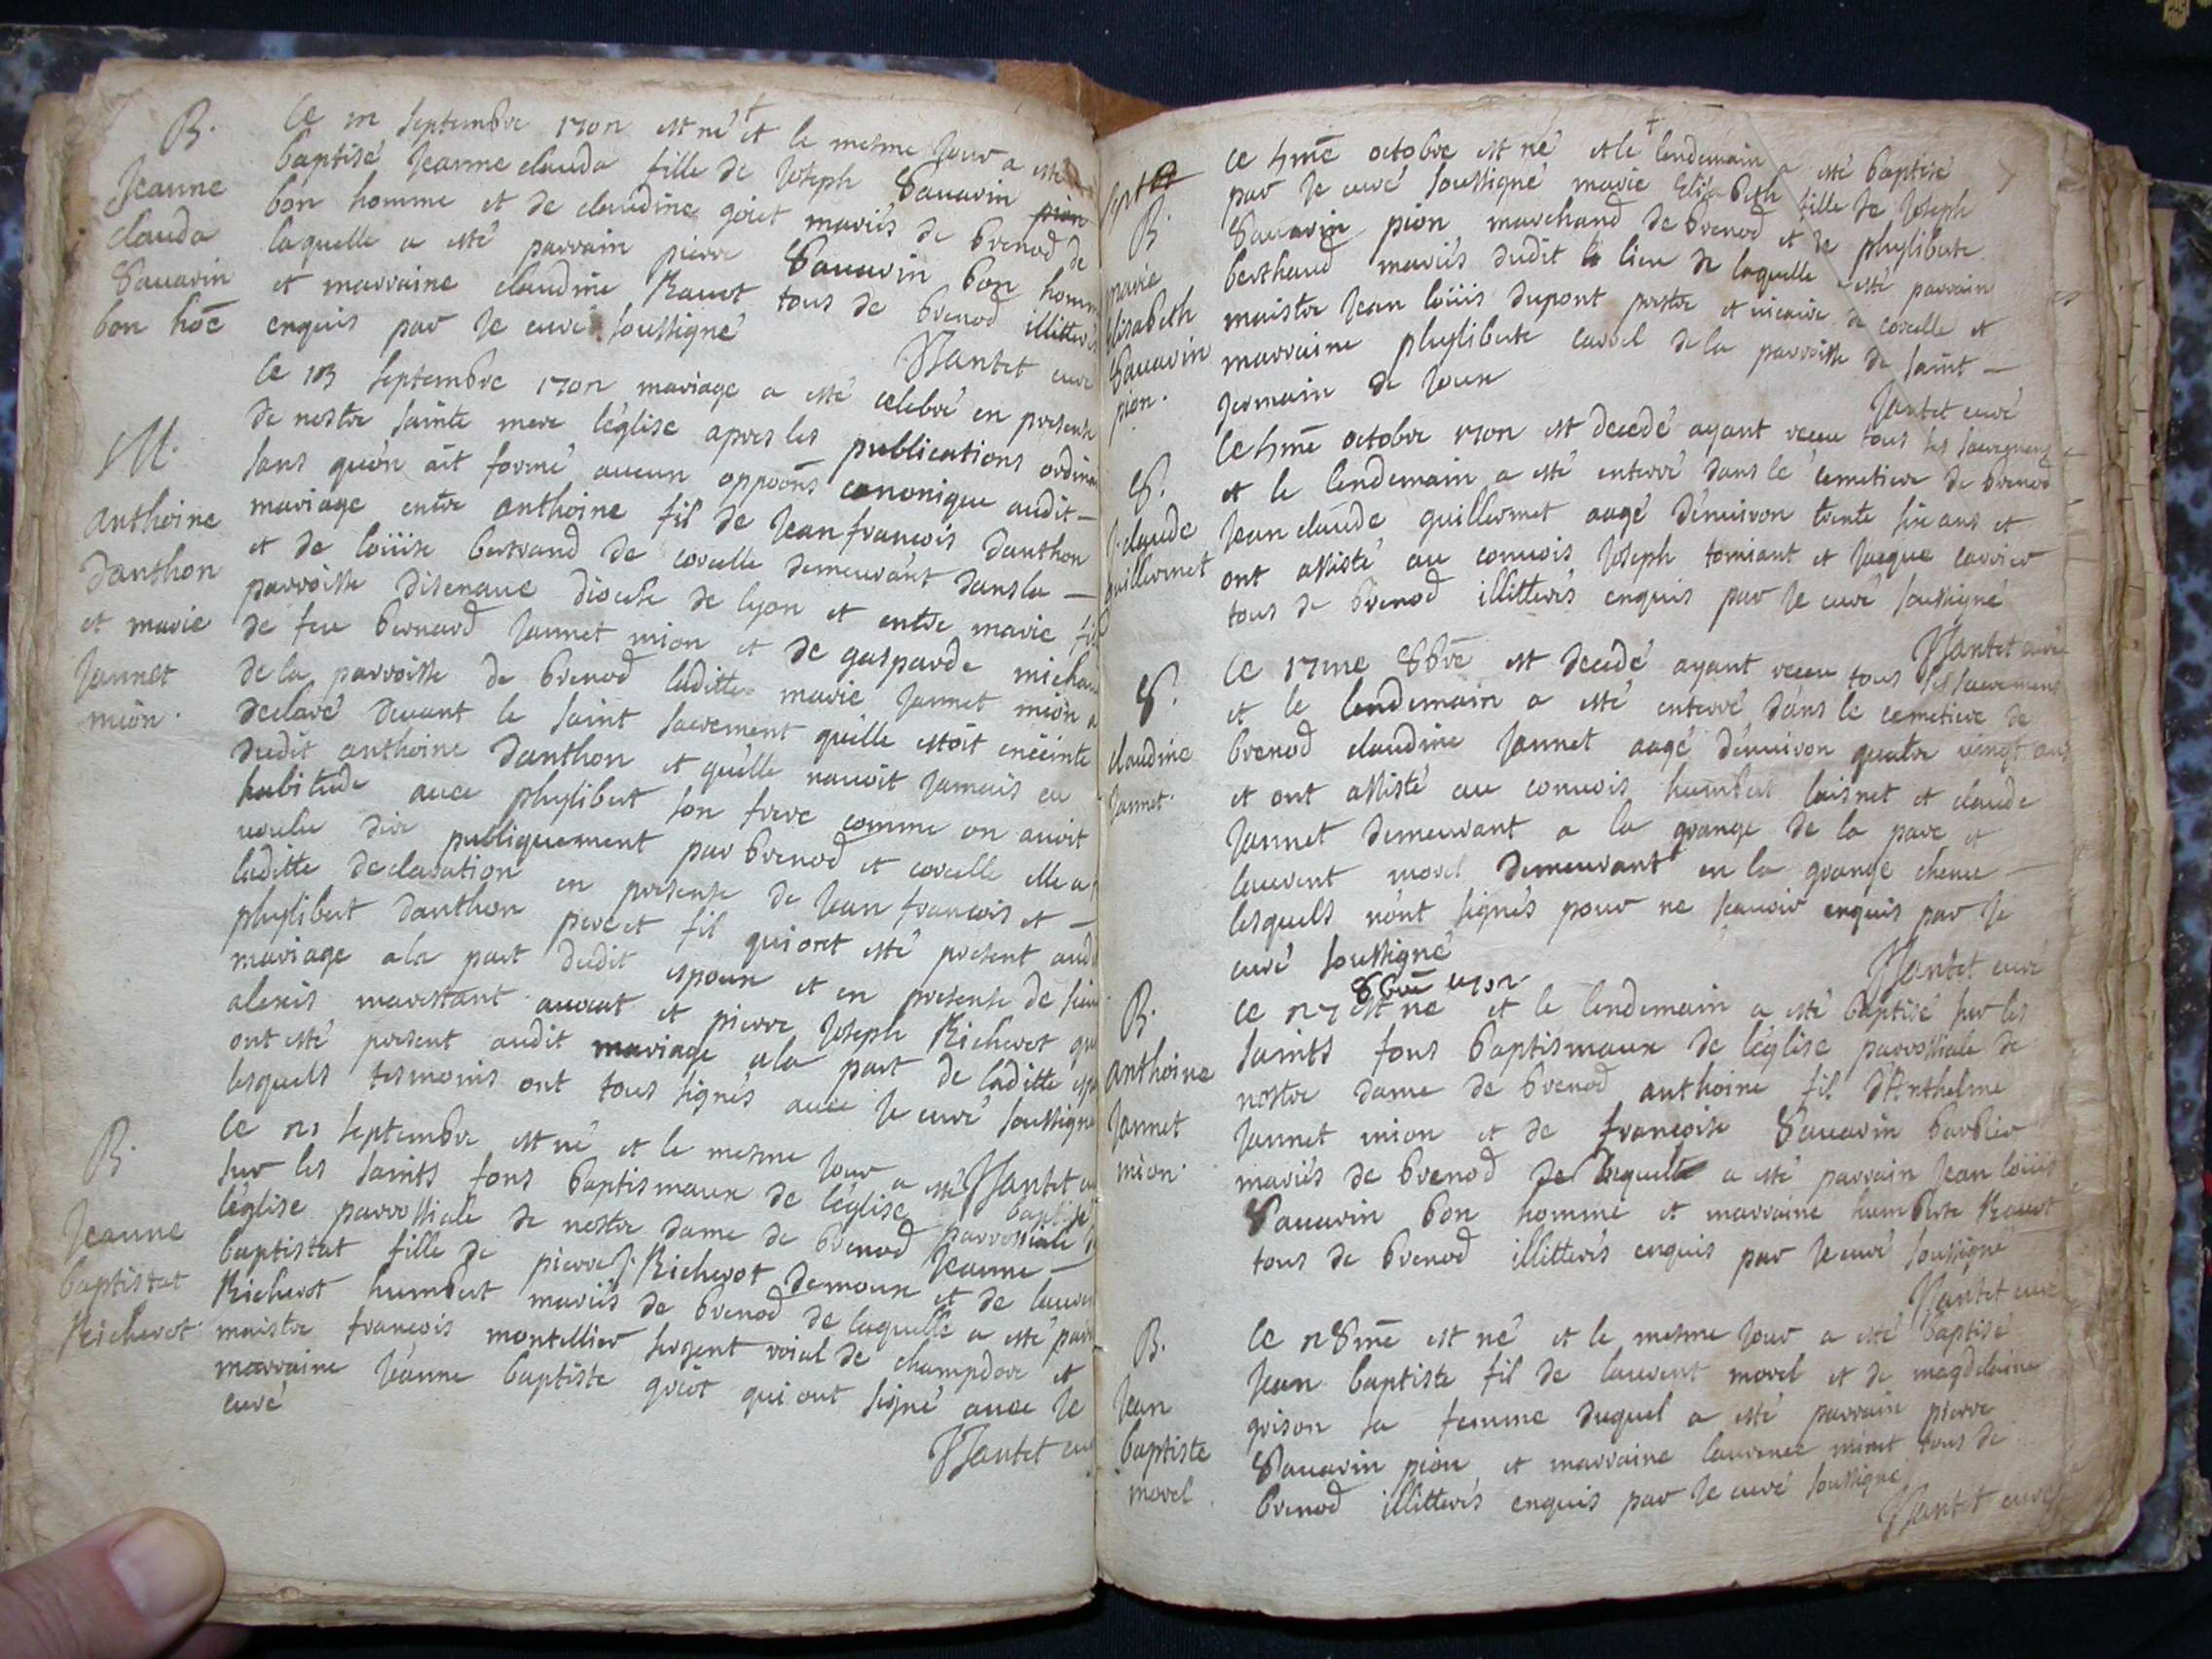 B.
Jeanne
clauda
Savarin
bon hoē
Ce septembre 1702 est né et le mesme jour a esté
baptisé Jeanne clauda fille de Joseph Savarin pion
bon homme et de claudine goiet mariés de brenod de
laquelle a esté parrain pierre Savarin bon homme
et marraine claudine Ravot tous de brenod illitterés
enquis par Je curé soussigné
Nantet curé
M.
anthoine
danthon
et marie
Jannet
mion.
Ce septembre 1702 mariage a esté celebré en presence
de nostre sainte mere l'église apres les publications ordinai
sans qu'on ait formé aucun oppoōns canonique audit
mariage entre anthoine fil de Jean francois danthon
et de loüise bertrand de corcelle demeurant dans la
parroisse disenave diocese de lyon et entre marie fill
de feu bernard Jannet mion et de gasparde michau
de la parroisse de brenod laditte marie Jannet mion a
declaré devant le saint sacrement quelle estoit enceinte
dudit anthoine danthon et quelle navoit Jamais eu
habitude avec phylibert son frere comme on avoit
voulu dire publiquement par brenod et corcelle elle a
laditte declaration en presence de Jean francois et
phylibert danthon pere et fil qui ont esté present aud
mariage a la part dudit espoux et en presence de
alexis marestant avocat et pierre Joseph Richerot qui
ont esté present audit mariage a la part de laditte
lesquels tesmoins ont tous signés avec Je curé soussigné
Nantet cu
B.
Jeanne
baptistat
Richerot
Ce 21 septembre est né et le mesme jour a esté baptisé
sur les saints fons baptismaux de l'église parrossiale
l'église parrossiale de nostre dame de brenod Jeanne
baptistat fille de pierre J. Richerot demoux et de lauren
Richerot humbert mariés de brenod de laquelle a esté parr
maistre francois montellier sergent roial de champdor et
marraine Jeanne baptiste goiot qui ont signé avec Je
curé
Nantet cu
B.
marie
elisabeth
Savarin
pion.
Ce 4mē octobre est né et le lendemain a esté baptisé
par Je curé soussigné marie Elisabeth fille de Joseph
Savarin pion marchand de brenod et de phyliberte
berthaud mariés dudit lieu de laquelle a esté parrain
maistre Jean loüis dupont prestre et vicaire de corcelle et
marraine phyliberte carrel de la parroisse de saint
germain de Joux
Nantet curé
S.
J. claude
guillermet
Ce 4mē octobre 1702 est decedé ayant receu tous ses sacremens
et le lendemain a esté enterré dans le cemetiere de brenod
Jean claude guillermet aagé d'environ trente six ans et
ont assisté au convois Joseph tomiant et Jacque carrier
tous de brenod illitterés enquis par Je curé soussigné
Nantet curé
S.
claudine
Jannet.
Ce 17me 8bre est decedé ayant receu tous ses sacremens
et le lendemain a esté enterré dans le cemetiere de
brenod claudine Jannet aagé d'environ quatre vingt ans
et ont assisté au convois humbert laisnet et claude
Jannet demeurant a la grange de la pare et
laurent morel demeurant en la grange chenu
lesquels n'ont signés pour ne scavoir enquis par Je
curé soussigné
Nantet curé
B.
anthoine
Jannet
mion.
8bre 1702
Ce 27 est né et le lendemain a esté baptisé sur les
saints fons baptismaux de l'église parrossiale de
nostre dame de brenod anthoine fil d'Anthelme
Jannet mion et de francoise Savarin barbier
mariés de brenod de laquelle a esté parrain Jean loüis
Savarin bon homme et marraine humberte Ravot
tous de brenod illitterés enquis par Je curé soussigné
Nantet curé
B.
Jean
baptiste
morel
Ce 28mē est né et le mesme jour a esté baptisé
Jean baptiste fil de laurent morel et de magdelaine
grison sa femme duquel a esté parrain pierre
Savarin pion et marraine laurence minet tous de
brenod illitterés enquis par Je curé soussigné
Nantet curé